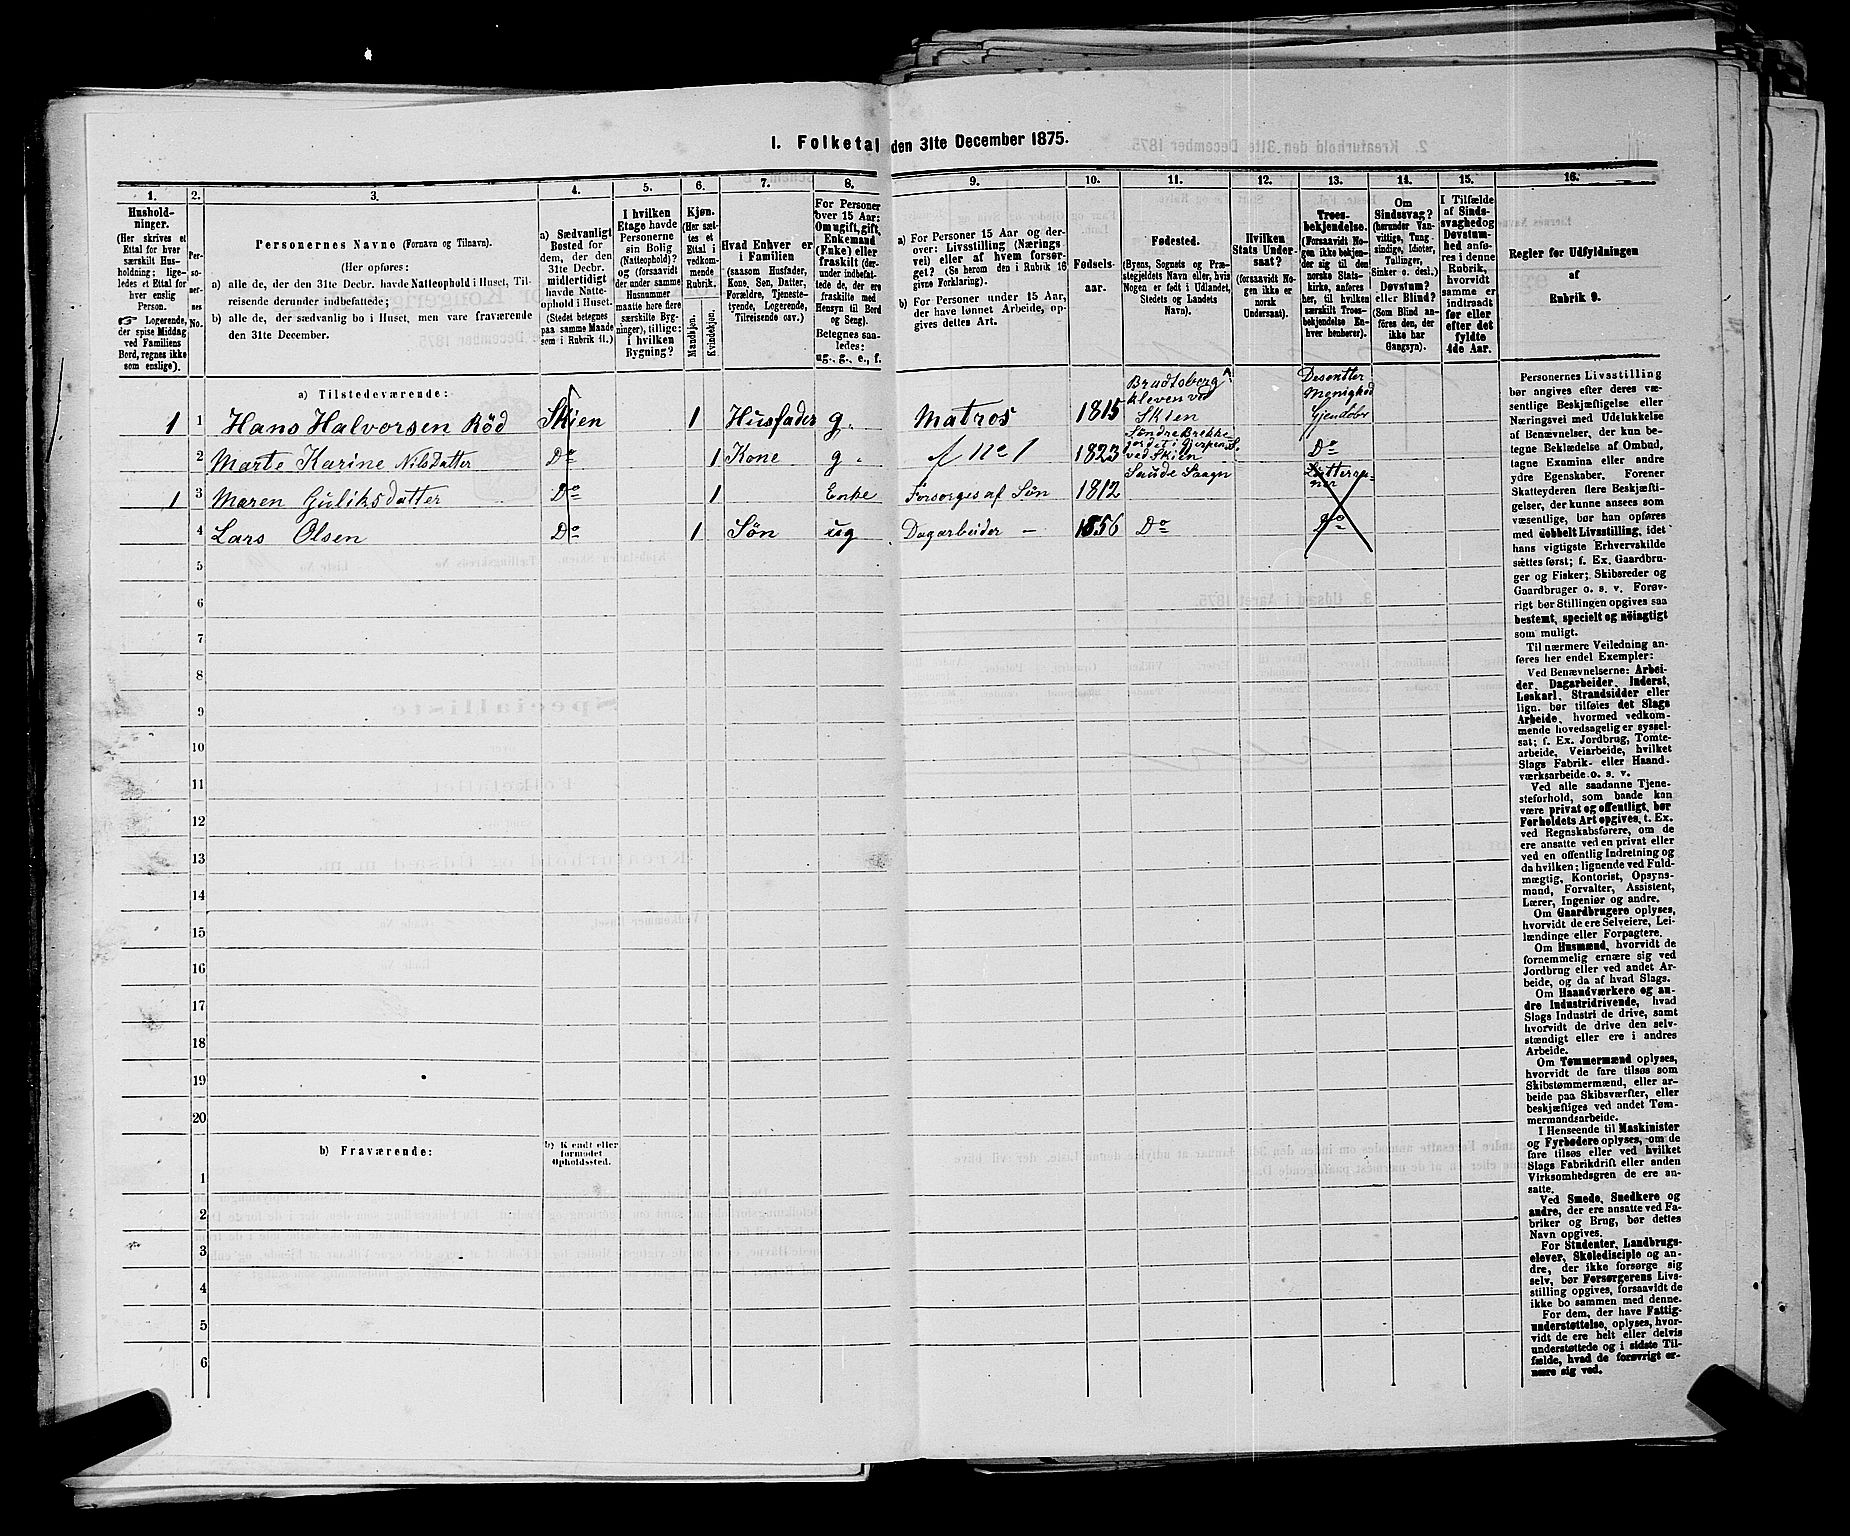 I. Folketal den 31te December 1875.
1. 2. 3. 4. 5. 6. 7. 8. 9. 10. 11. 12. 13. 14. 15. 16.
Hushold-
ninger.
(Her skrives et
Ettal for hver
særskilt Hus-
holdning; lige-
ledes et Ettal for
hver enslig
Person.
☞ Logerende,
der spise Middag
ved Familiens
Bord, regnes ikke
som enslige).
Per-
so-
ner-
nes
No.
Personernes Navne (Fornavn og Tilnavn).
(Her opføres:
a) alle de, der den 31te Decbr. havde Natteophold i Huset, Til-
reisende derunder indbefattede;
b) alle de, der sædvanlig bo i Huset, men vare fraværende
den 31te December.
a) Sædvanligt
Bosted for
dem, der den
31te Decbr.
midlertidigt
havde Natte-
ophold i Huset.
(Stedet betegnes
paa samme Maade
som i Rubrik 11.)
I hvilken
Etage havde
Personerne
sin Bolig
(Natteophold)?
og (forsaavidt
der under samme
Husnummer
maatte høre flere
særskilte Byg-
ninger), tillige:
i hvilken
Bygning?
Kjøn.
(Her sæt-
tes et
Ettal i
vedkom-
mende
Rubrik.
Mandkjøn.
Kvindekjøn.
Hvad Enhver er
i Familien
(saasom Husfader,
Kone, Søn, Datter,
Forældre, Tjeneste-
tyende, Logerende,
Tilreisende osv.)
For Personer
over 15 Aar:
Om ugift, gift,
Enkemand
(Enke) eller
fraskilt (der-
under indbefat-
tede de, der ere
fraskilte med
Hensyn til Bord
og Seng).
Betegnes saa-
ledes:
ug., g., e., f.
a) For Personer 15 Aar og der-
over: Livsstilling (Nærings
vei) eller af hvem forsør-
get? (Se herom den i Rubrik 16
givne Forklaring).
b) For Personer under 15 Aar,
der have lønnet Arbeide, op-
gives dettes Art.
Fødsels-
aar.
Fødested.
(Byens, Sognets og Præ-
stegjeldets Navn eller, hvis
Nogen er født i Udlandet,
Stedets og Landets
Navn).
Hvilken
Stats Under-
saat?
(forsaavidt No-
gen ikke er
norsk
Undersaat).
Troes-
bekjendelse.
(Forsaavidt No-
gen ikke bekjen-
der sig til den
norske Stats-
kirke, anføres
her, til hvilken
særskilt Troes-
bekjendelse En-
hver henhører).
Om
Sindssvag?
(herunder Van-
vittige, Tung-
sindige, Idioter,
Tullinger,
Sinker o. desl.)
Døvstum?
eller Blind?
(Som Blind an-
føres den, der
ikke har
Gangsyn).
I Tilfælde
af Sinds-
svaghed og
Døvstum-
hed anfø-
res i denne
Rubrik,
hvorvidt
samme er
indtraadt
før eller
efter det
fyldte
4de Aar.
Regler for Udfyldningen
af
Rubrik 9.
a) Tilstedeværende:
1 1 Hans Halvorsen Röd Skien 1 Husfader g. Matros 1815 Bradtsberg
kleven ved
Skien Desentter
Menighed
2 Marte Karine Nilsdatter Do 1 Kone g. f No 1 1823 Söndre Brekke
jordet i Gjerpen S.
ved Skien Do
1 3 Maren Guliksdatter Do 1 Enke Forsorges af Sön 1812 Saude Saagn
4 Lars Olsen Do 1 Sön ug Dagarbeider – 1856 Do Do
5
6
7
8
9
10
11
12
13
14
15
16
17
18
19
20
b) Fraværende:
b) Kjendt eller
formodet
Opholdssted.
1
2
3
4
5
6
Personernes Livsstilling
bør angives efter deres væ-
sentlige Beskjæftigelse eller
Næringsvei med Udelukkelse
af Benævnelser, der kun be-
tegne Beklædelse af Ombud,
tagne Examina eller andre
ydre Egenskaber. Forener
Skatteyderen flere Beskjæfti-
gelser, der kunne ansees som
væsentlige, bør han opføres
med dobbelt Livsstilling, idet
hans vigtigste Erhvervskilde
sættes først; f. Ex. Gaardbru-
ger og Fisker; Skibsreder og
Gaardbruger o. s. v. Forøv-
rigt bør Stillingen opgives saa
bestemt, specielt og nöiagtigt
som muligt.
Til nærmere Veiledning an-
føres her endel Exempler:
Ved Benævnelserne: Arbei-
der, Dagarbeider, Inderst,
Løskarl, Strandsidder eller
lign. bør tilføies det Slags
Arbeide, hvormed vedkom-
mende hovedsagelig er syssel-
sat; f. Ex. Jordbrug, Tomte-
arbeide, Veiarbeide, hvilket
Slags Fabrik- eller Haand-
værksarbeide o. s. v.
Ved alle saadanne Tjene-
steforhold, som baade kan
være privat og offentligt, bør
Forholdets Art opgives, t. Ex.
ved Regnskabsførere, om de
ere ansatte ved en privat eller
ved en offentlig Indretning og
da hvilken; lignende ved Fuld-
mægtig, Kontorist, Opsyns-
mand, Forvalter, Assistent,
Lærer, Ingeniør og andre.
Om Gaardbrugere oplyses,
hvorvidt de ere Selveiere, Lei-
lændinge eller Forpagtere.
Om Husmænd, hvorvidt de
fornemmelig ernære sig ved
Jordbrug eller ved andet Ar-
beide, og da af hvad Slags.
Om Haandværkere og an-
dre Industridrivende, hvad
Slags Industri de drive, samt
hvorvidt de drive den selv-
stændigt eller ere i andres
Arbeide.
Om Tømmermænd oplyses,
hvorvidt de fare tilsøs som
Skibstømmermænd, eller ar-
beide paa Skibsværfter, eller
beskjæftiges ved andet Tøm-
mermandsarbeide.
I Henseende til Maskinister
og Fyrbødere oplyses, om de
fare tilsøs eller ved hvilket
Slags Fabrikdrift eller anden
Virksomhedsgren de ere an-
satte.
Ved Smede, Snedkere og
andre, der ere ansatte ved Fa-
briker og Brug, bør dettes
Navn opgives.
For Studenter, Landbrugs-
elever, Skoledisciple og an-
dre, der ikke forsørge sig
selv, bør Forsørgerens Livs-
stilling opgives, forsaavidt de
ikke bo sammen med denne.
For dem, der have Fattig-
understøttelse, oplyses, hvor-
vidt de ere helt eller delvis
understøttede og i sidste Til-
fælde, hvad de forøvrigt er-
nære sig ved.